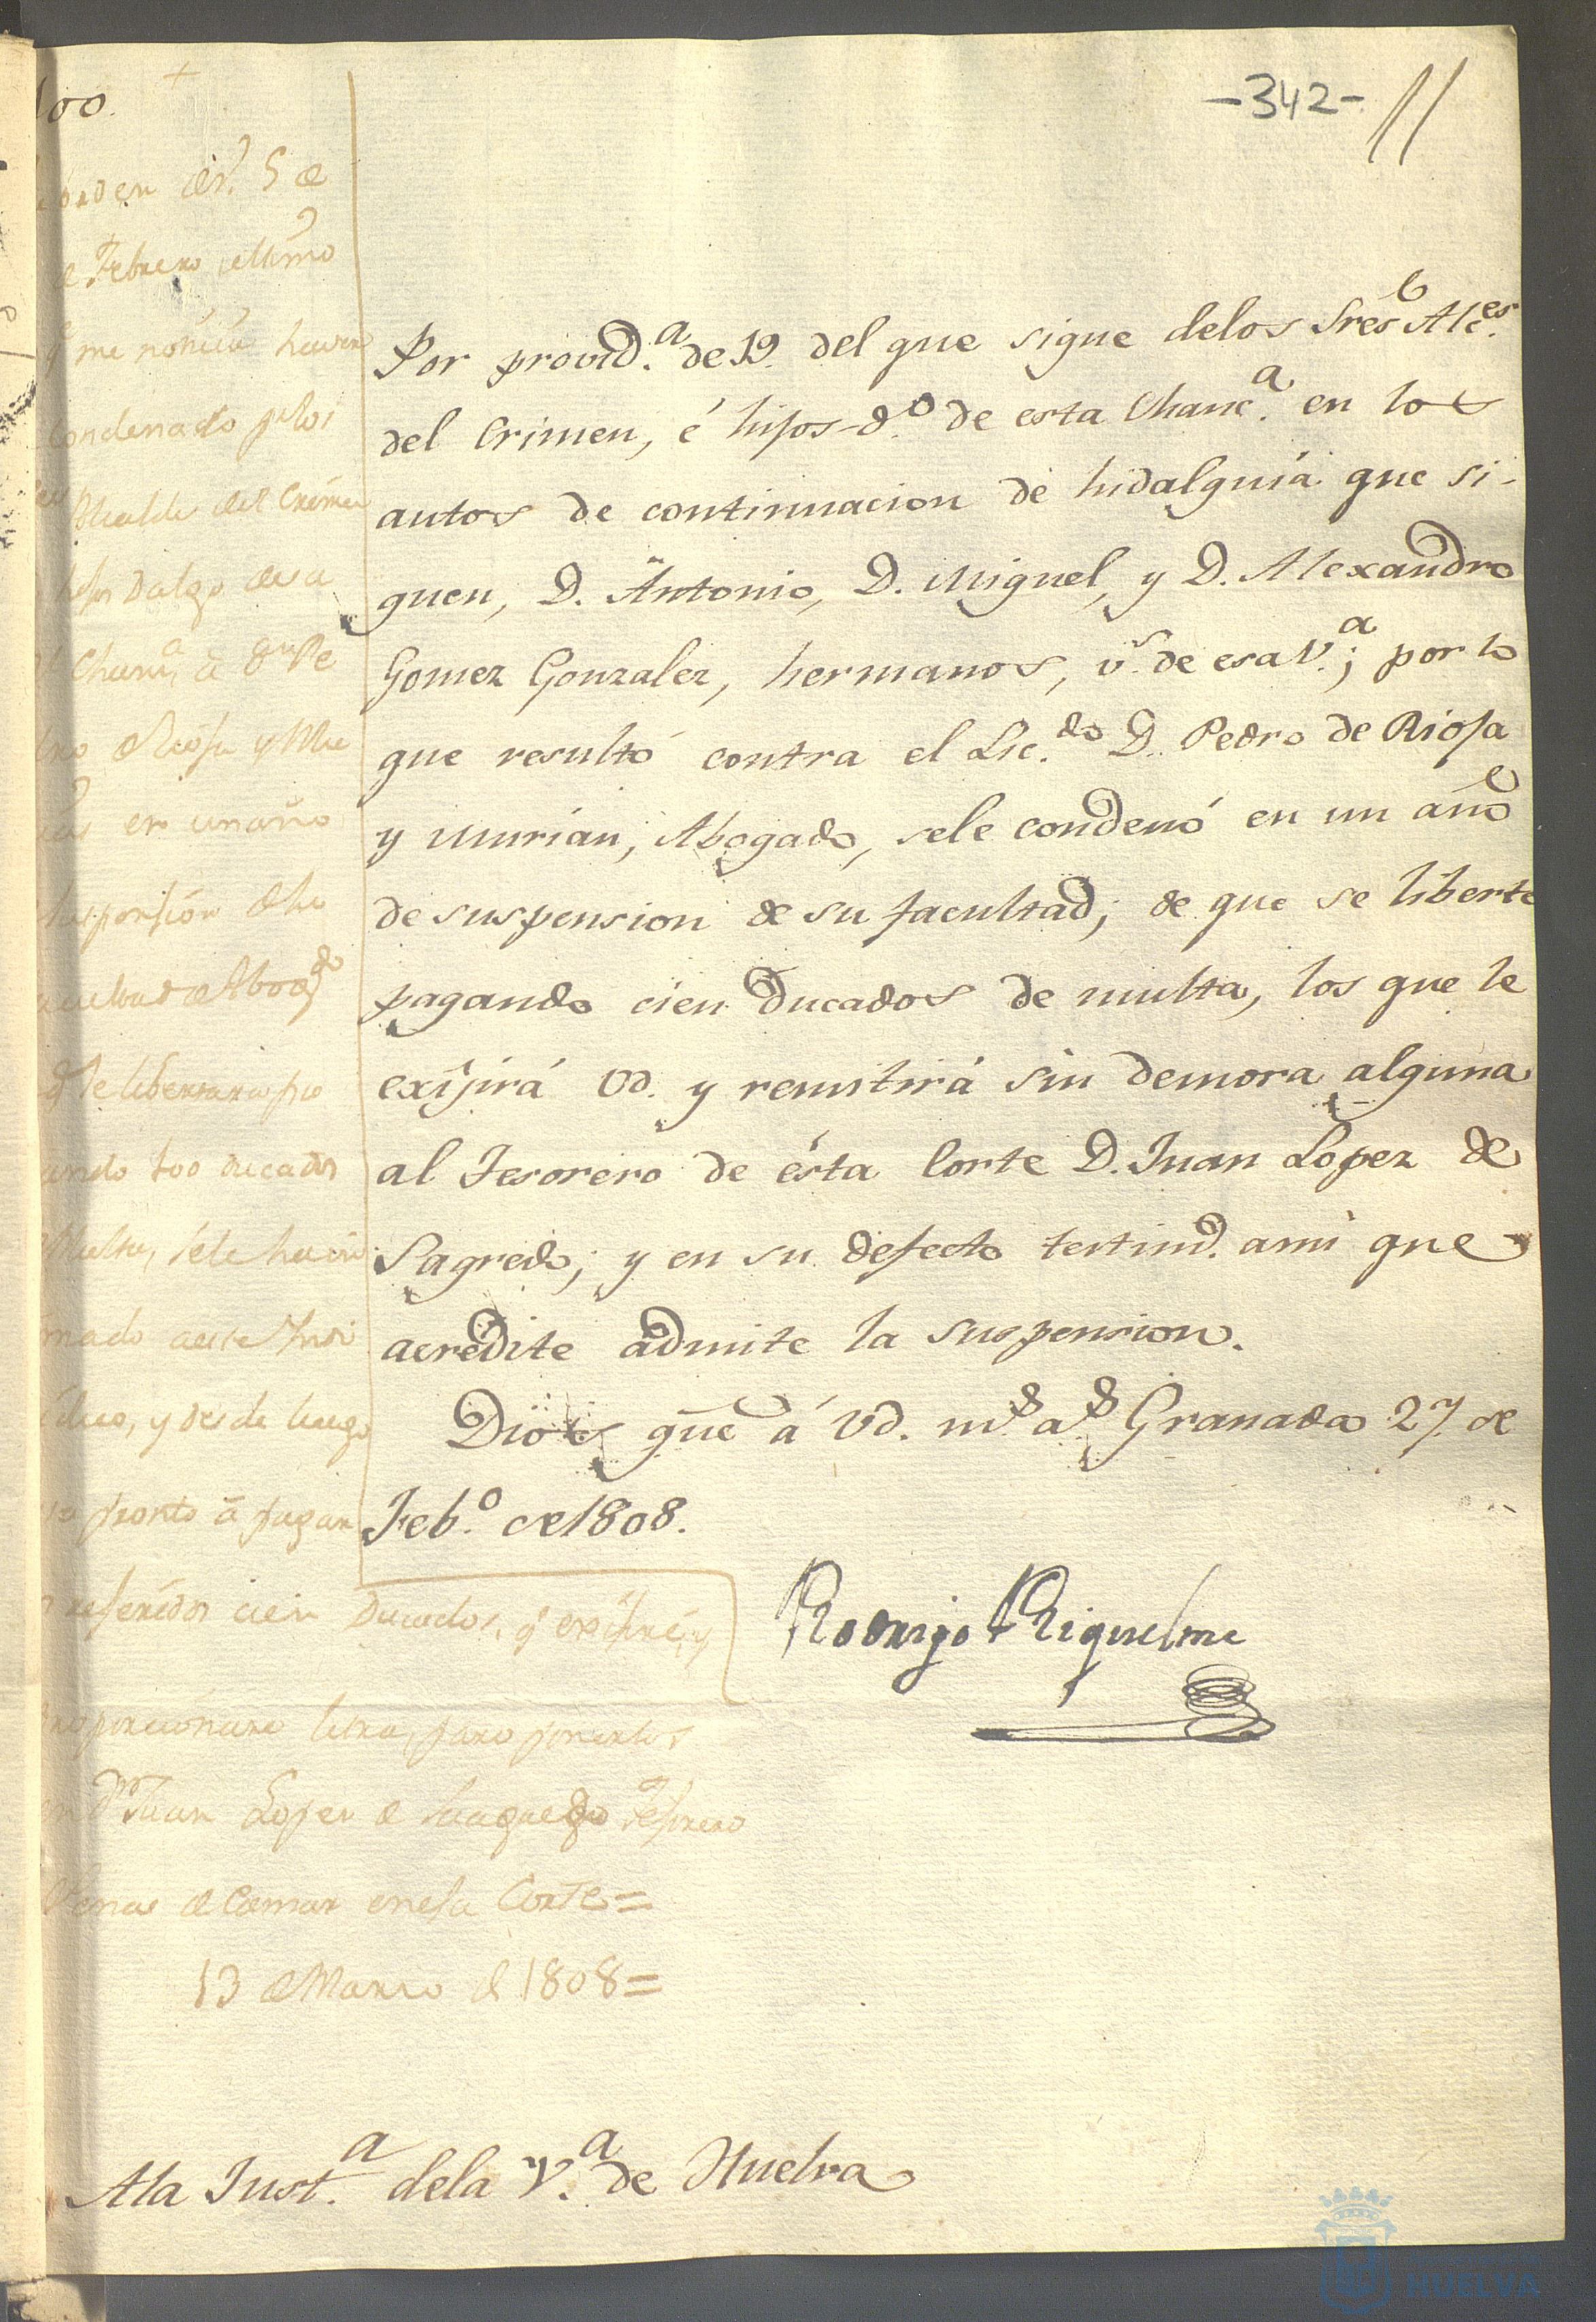 -342- 11
100.
orden de V. S. de
de Febrero ultimo
q.e me noticia haver
condenado p.r los
Alcaldes del Crimen
hijos Dalgo de esa
Chanc.a á D.n Pe
dro de Riosa y Mu
en un año
suspension de la
facultad de Abog.do
q.e se libertaria pa
gando 100 ducados
Multa, sele ha
mado
y desde luego
pronto á pagar
referidos cien Ducados, q.e exijiré, y
proporcionaré letra, para ponerlos
en D.n Juan Lopez de Sagredo Tesorero
Penas de Camara en esa Corte=
13 de Marzo de 1808=
Por provid.a de 19. del que sigue delos Sres. Alc.es
del Crimen, é hijos-d.o de esta Chanc.a en los
autos de continuacion de hidalguia que si-
guen, D. Antonio, D. Miguel, y D. Alexandro
Gomez Gonzalez, hermanos, v.s de esa V.a; por lo
que resultó contra el Lic.do D. Pedro de Riosa
y Murian, Abogado, sele condenó en un año
de suspension de su facultad; de que se liberte
pagando cien Ducados de multa, los que le
exijirá Vd. y remitirá sin demora alguna
al Tesorero de ésta Corte D. Juan Lopez de
Sagredo; y en su defecto testim.o ami que
acredite admite la suspension.
Dios gue á Vd. m.s a.s Granada 27 de
Feb.o de 1808.
Rodrigo Riquelme
Ala Just.a dela V.a de Huelva
HUELVA